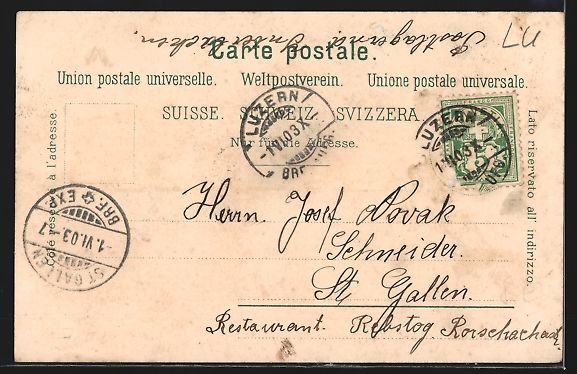 Postlagernd Interlacken.
LU
Carte postale.
Union postale universelle. Weltpostverein. Unione postale universale.
SUISSE. SCHWEIZ. SVIZZERA.
Nur für die Adresse.
Côté réservé à l'adresse.
Lato riservato all' indirizzo.
LUZERN
-1.VI.03.X
BRF.
LUZERN
1.VI.03.X
5
ST. GALLEN
-1.VI.03.-7
BRF. EXP.
Herrn Josef Novak
Schneider.
St Gallen.
Restaurant Rebstog Rorschach